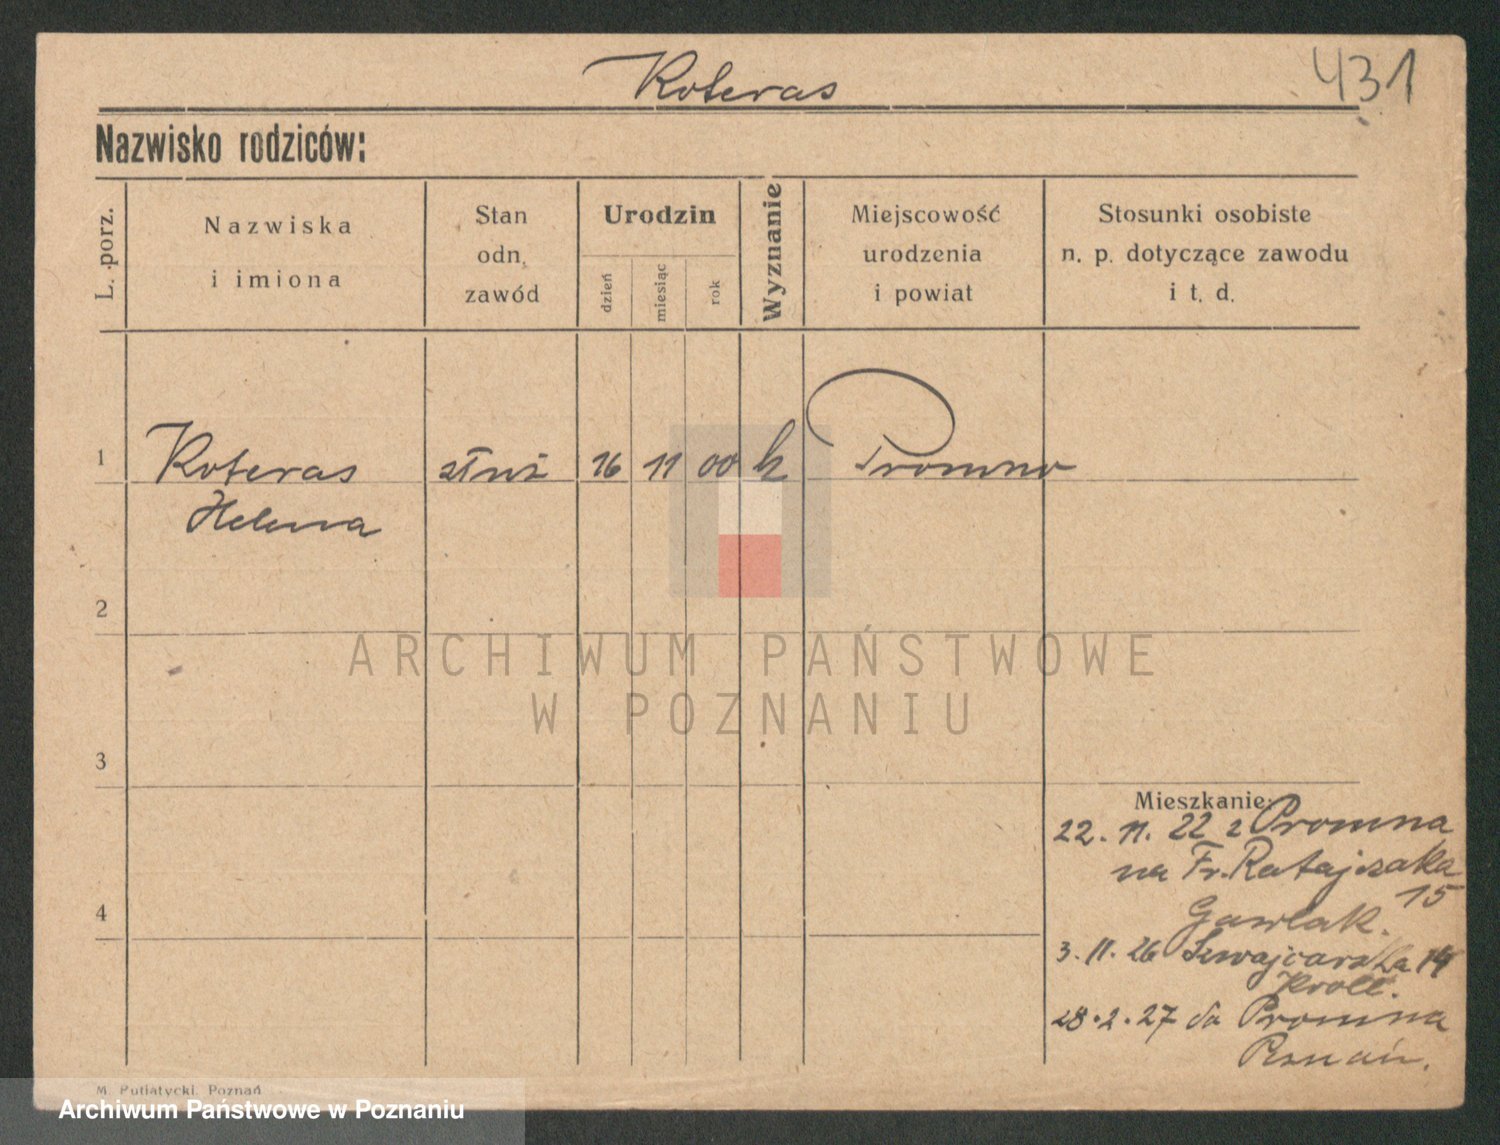 Koteras
431
Nazwisko rodziców:
L. porz.
Nazwiska
i imiona
Stan
odn.
zawód
Urodzin
dzień
miesiąc
rok
Wyznanie
Miejscowość
urodzenia
i powiat
Stosunki osobiste
n. p. dotyczące zawodu
i t. d.
1
Koteras
Helena
służ
16
11
00
k
Promno
2
3
4
Mieszkanie:
22. 11. 22 z Promna
na Fr. Ratajczaka
15
Gawlak.
3. 11. 26 Szwajcarska 14
Kroll.
28. 2. 27 do Promna
Poznań.
M. Putiatycki, Poznań
ARCHIWUM PAŃSTWOWE
W POZNANIU
Archiwum Państwowe w Poznaniu